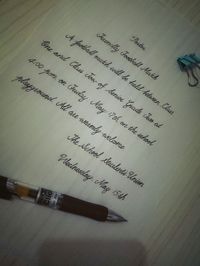 Poster
Friendly Football Match
A football match will be held between Class
One and Class Two of Senior Grade Two at
4:00 pm on Friday May 17th on the school
playground. All are warmly welcome
The School Students Union
Wednesday, May 15th